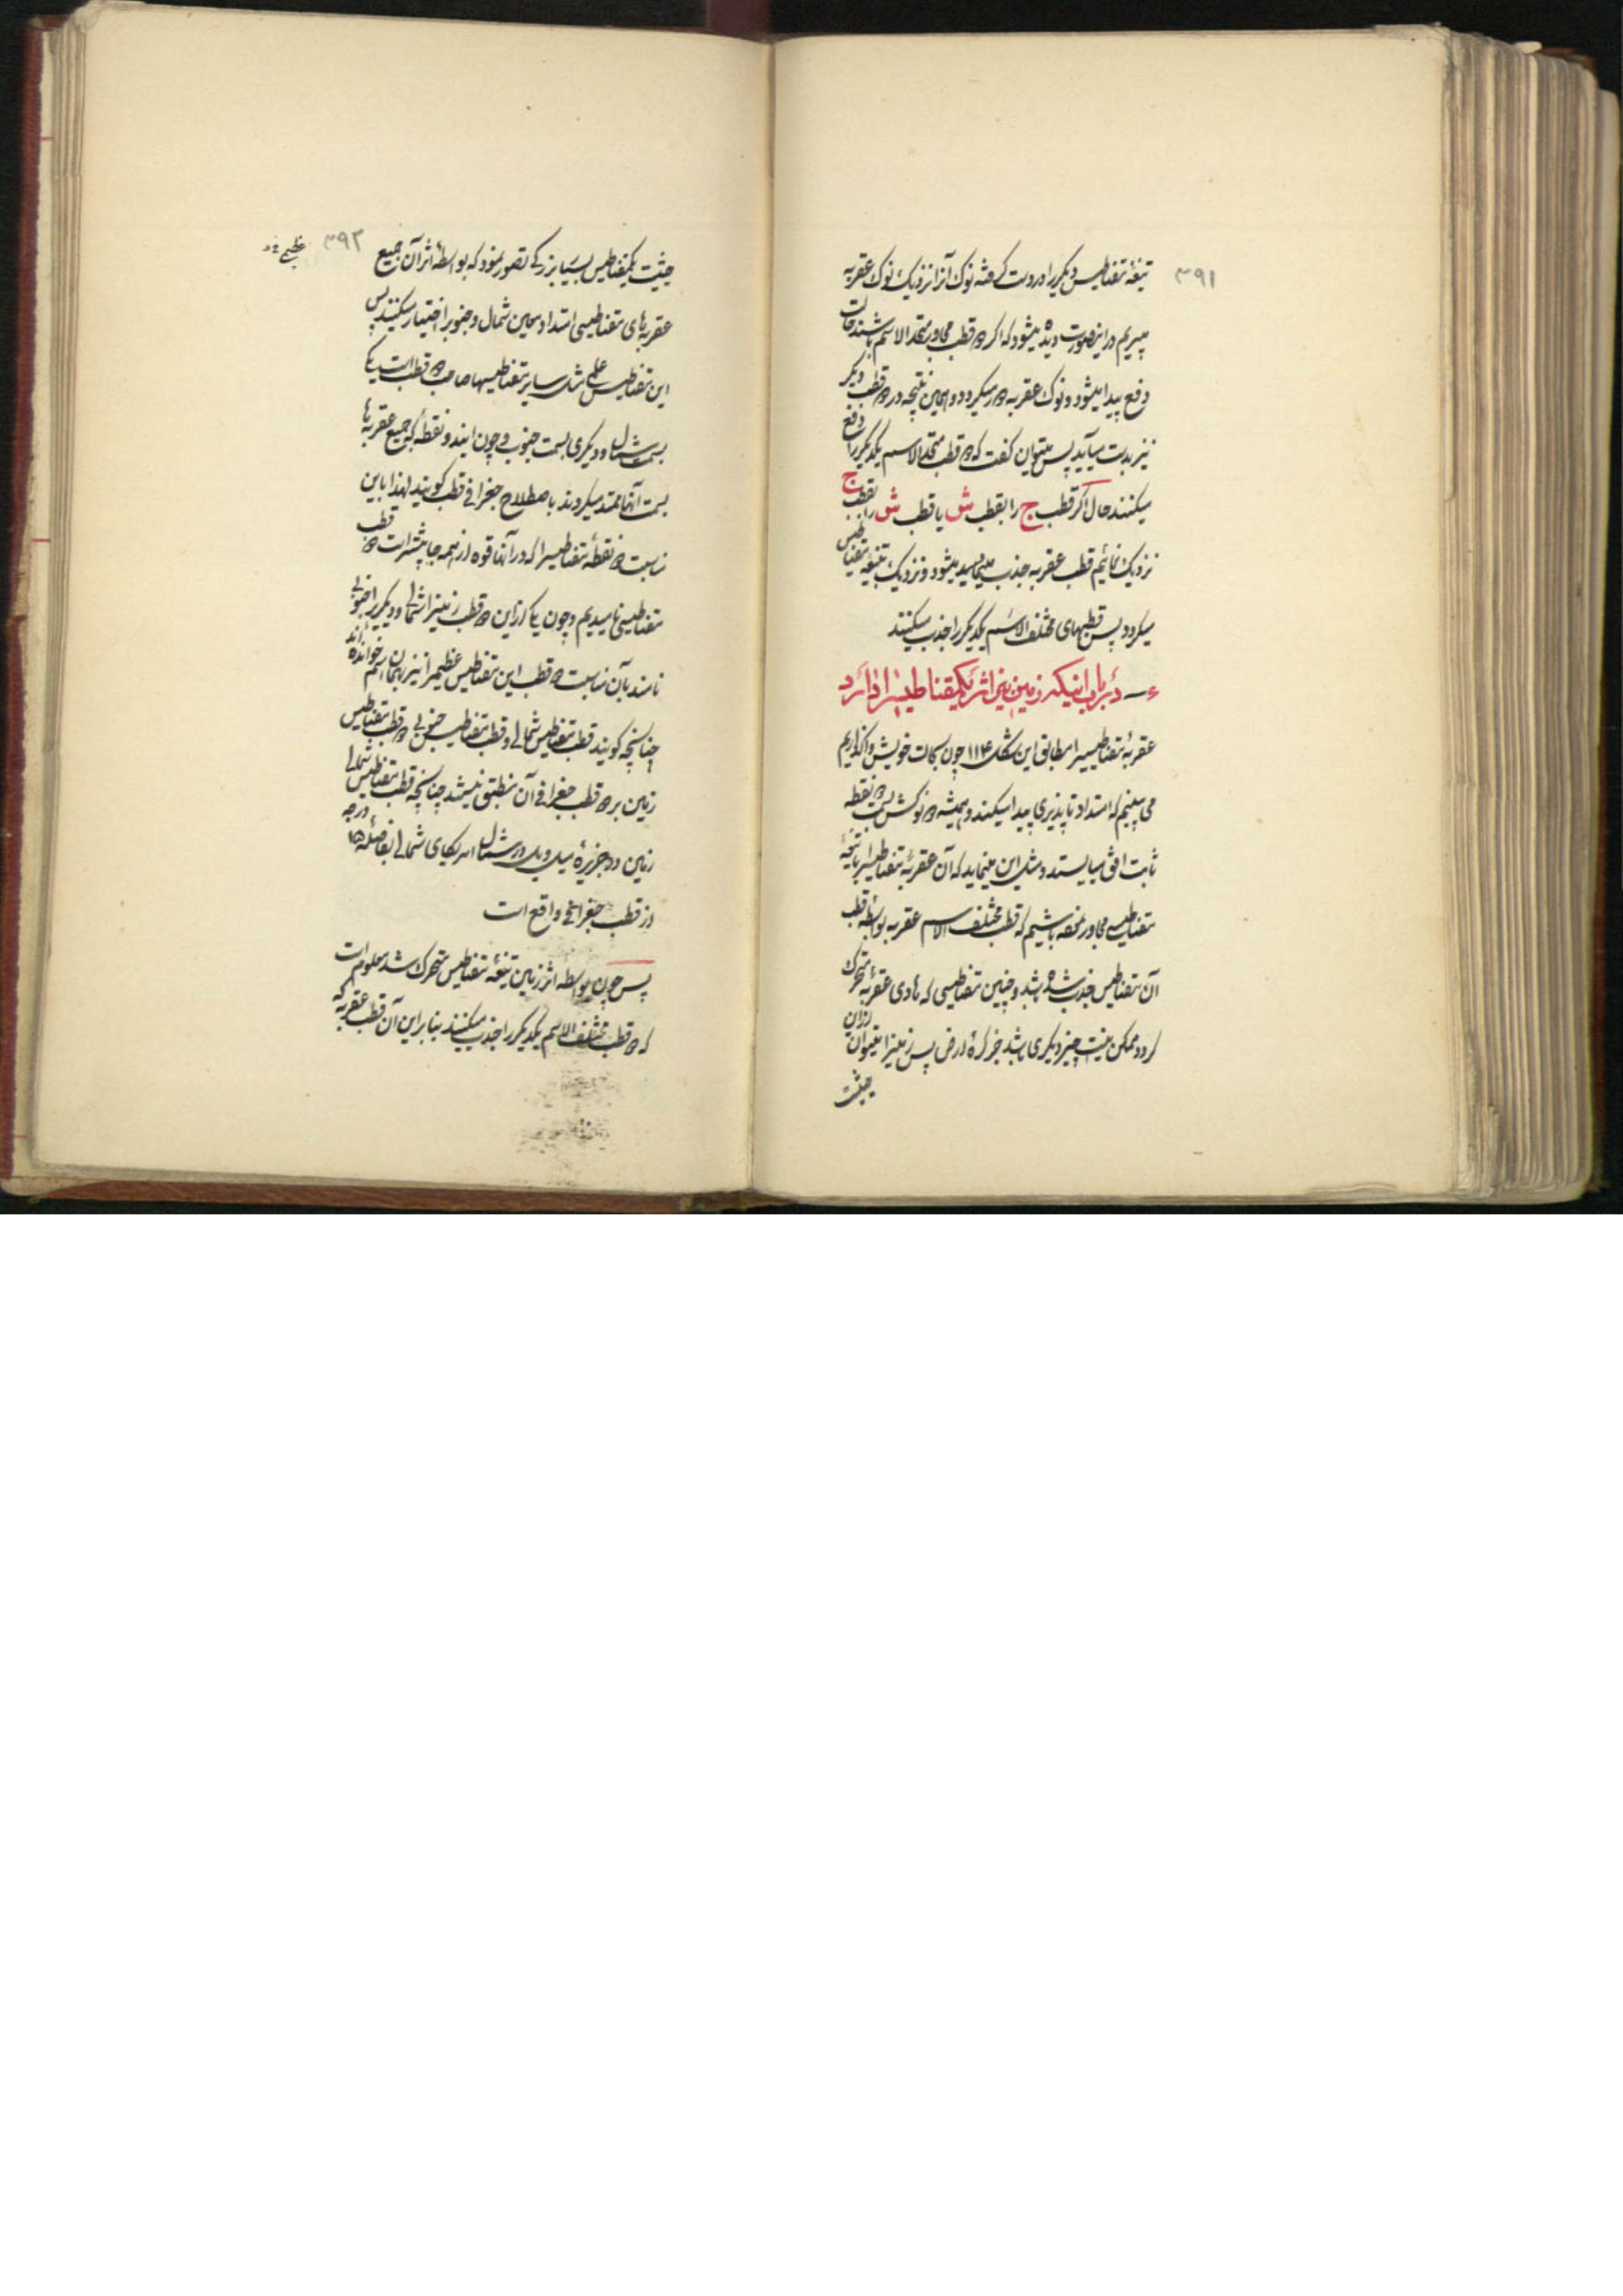 ۳۹۱
تیغهٔ مقناطیس دیگر را در دست گرفته نوک آنرا نزدیک نوک عقربه
میبریم در اینصورت دیده میشود که اگر دو قطب مجاور متحد الاسم باشند حالت
دفع پیدا میشود و نوک عقربه دور میگردد و همین نتیجه در دو قطب دیگر
نیز بدست میآید پس میتوان گفت که دو قطب متحد الاسم یکدیگر را دفع
میکنند حال اگر قطب ج را بقطب ش یا قطب ش را بقطب ج
نزدیک نمائیم قطب عقربه جذب میشود و نزدیک بتیغه مقناطیس
میگردد پس قطبهای مختلف الاسم یکدیگر را جذب میکنند
۴ – در باب اینکه زمین نیز اثر یکمقناطیسرا دارد
عقربهٔ مقناطیسیرا مطابق این شکل ۱۱۴ چون بحالت خویش واگذاریم
می بینیم که امتداد ناپذیری پیدا میکند و همیشه دو نوکش بسمت دو نقطه
ثابت افق میایستد و مثل این مینماید که آن عقربهٔ مقناطیسرا با تیغهٔ
مقناطیسی مجاور نموده باشیم که قطب مختلف الاسم عقربه بواسطهٔ قطب
آن مقناطیس جذب شده باشد و چنین مقناطیسی که هادی عقربهٔ متحرک
گردد ممکن نیست چیز دیگری باشد جز کرهٔ ارض پس زمینرا میتوان از آن
حیثیت
۳۹۲
حیثیت یکمقناطیس بسیار بزرگی تصور نمود که بواسطهٔ اثر آن جمیع
عقربه‌های مقناطیسی امتداد معین شمال و جنوبرا اختیار میکنند پس
این مقناطیس عظیم مثل سایر مقناطیسها صاحب دو قطب است یکی
بسمت شمال و دیگری بسمت جنوب و چون ایندو نقطه که جمیع عقربها
بسمت آنها ممتد میگردند باصطلاح جغرافی قطب گویند لهذا باین
مناسبت دو نقطهٔ مقناطیسرا که در آنها قوه از همه جا بیشتر است دو قطب
مقناطیسی نامیدیم و چون یکی از این دو قطب زمینرا شمالی و دیگریرا جنوبی
نامند بآن مناسبت دو قطب این مقناطیس عظیمرا نیز بهمان اسم خوانده‌اند
چنانچه گویند قطب مقناطیس شمالی و قطب مقناطیس جنوبی و دو قطب مقناطیس
زمین بر دو قطب جغرافی آن منطبق نمیشد چنانچه قطب مقناطیس شمالی
زمین در جزیرهٔ میل ویل در شمال امریکای شمالی بفاصلهٔ ۱۵ درجه
از قطب جغرافی واقع است
پس چون بواسطه اثر زمین تیغهٔ مقناطیس متحرک شد معلوم است
که دو قطب مختلف الاسم یکدیگر را جذب میکنند بنابراین آن قطب عقربه که